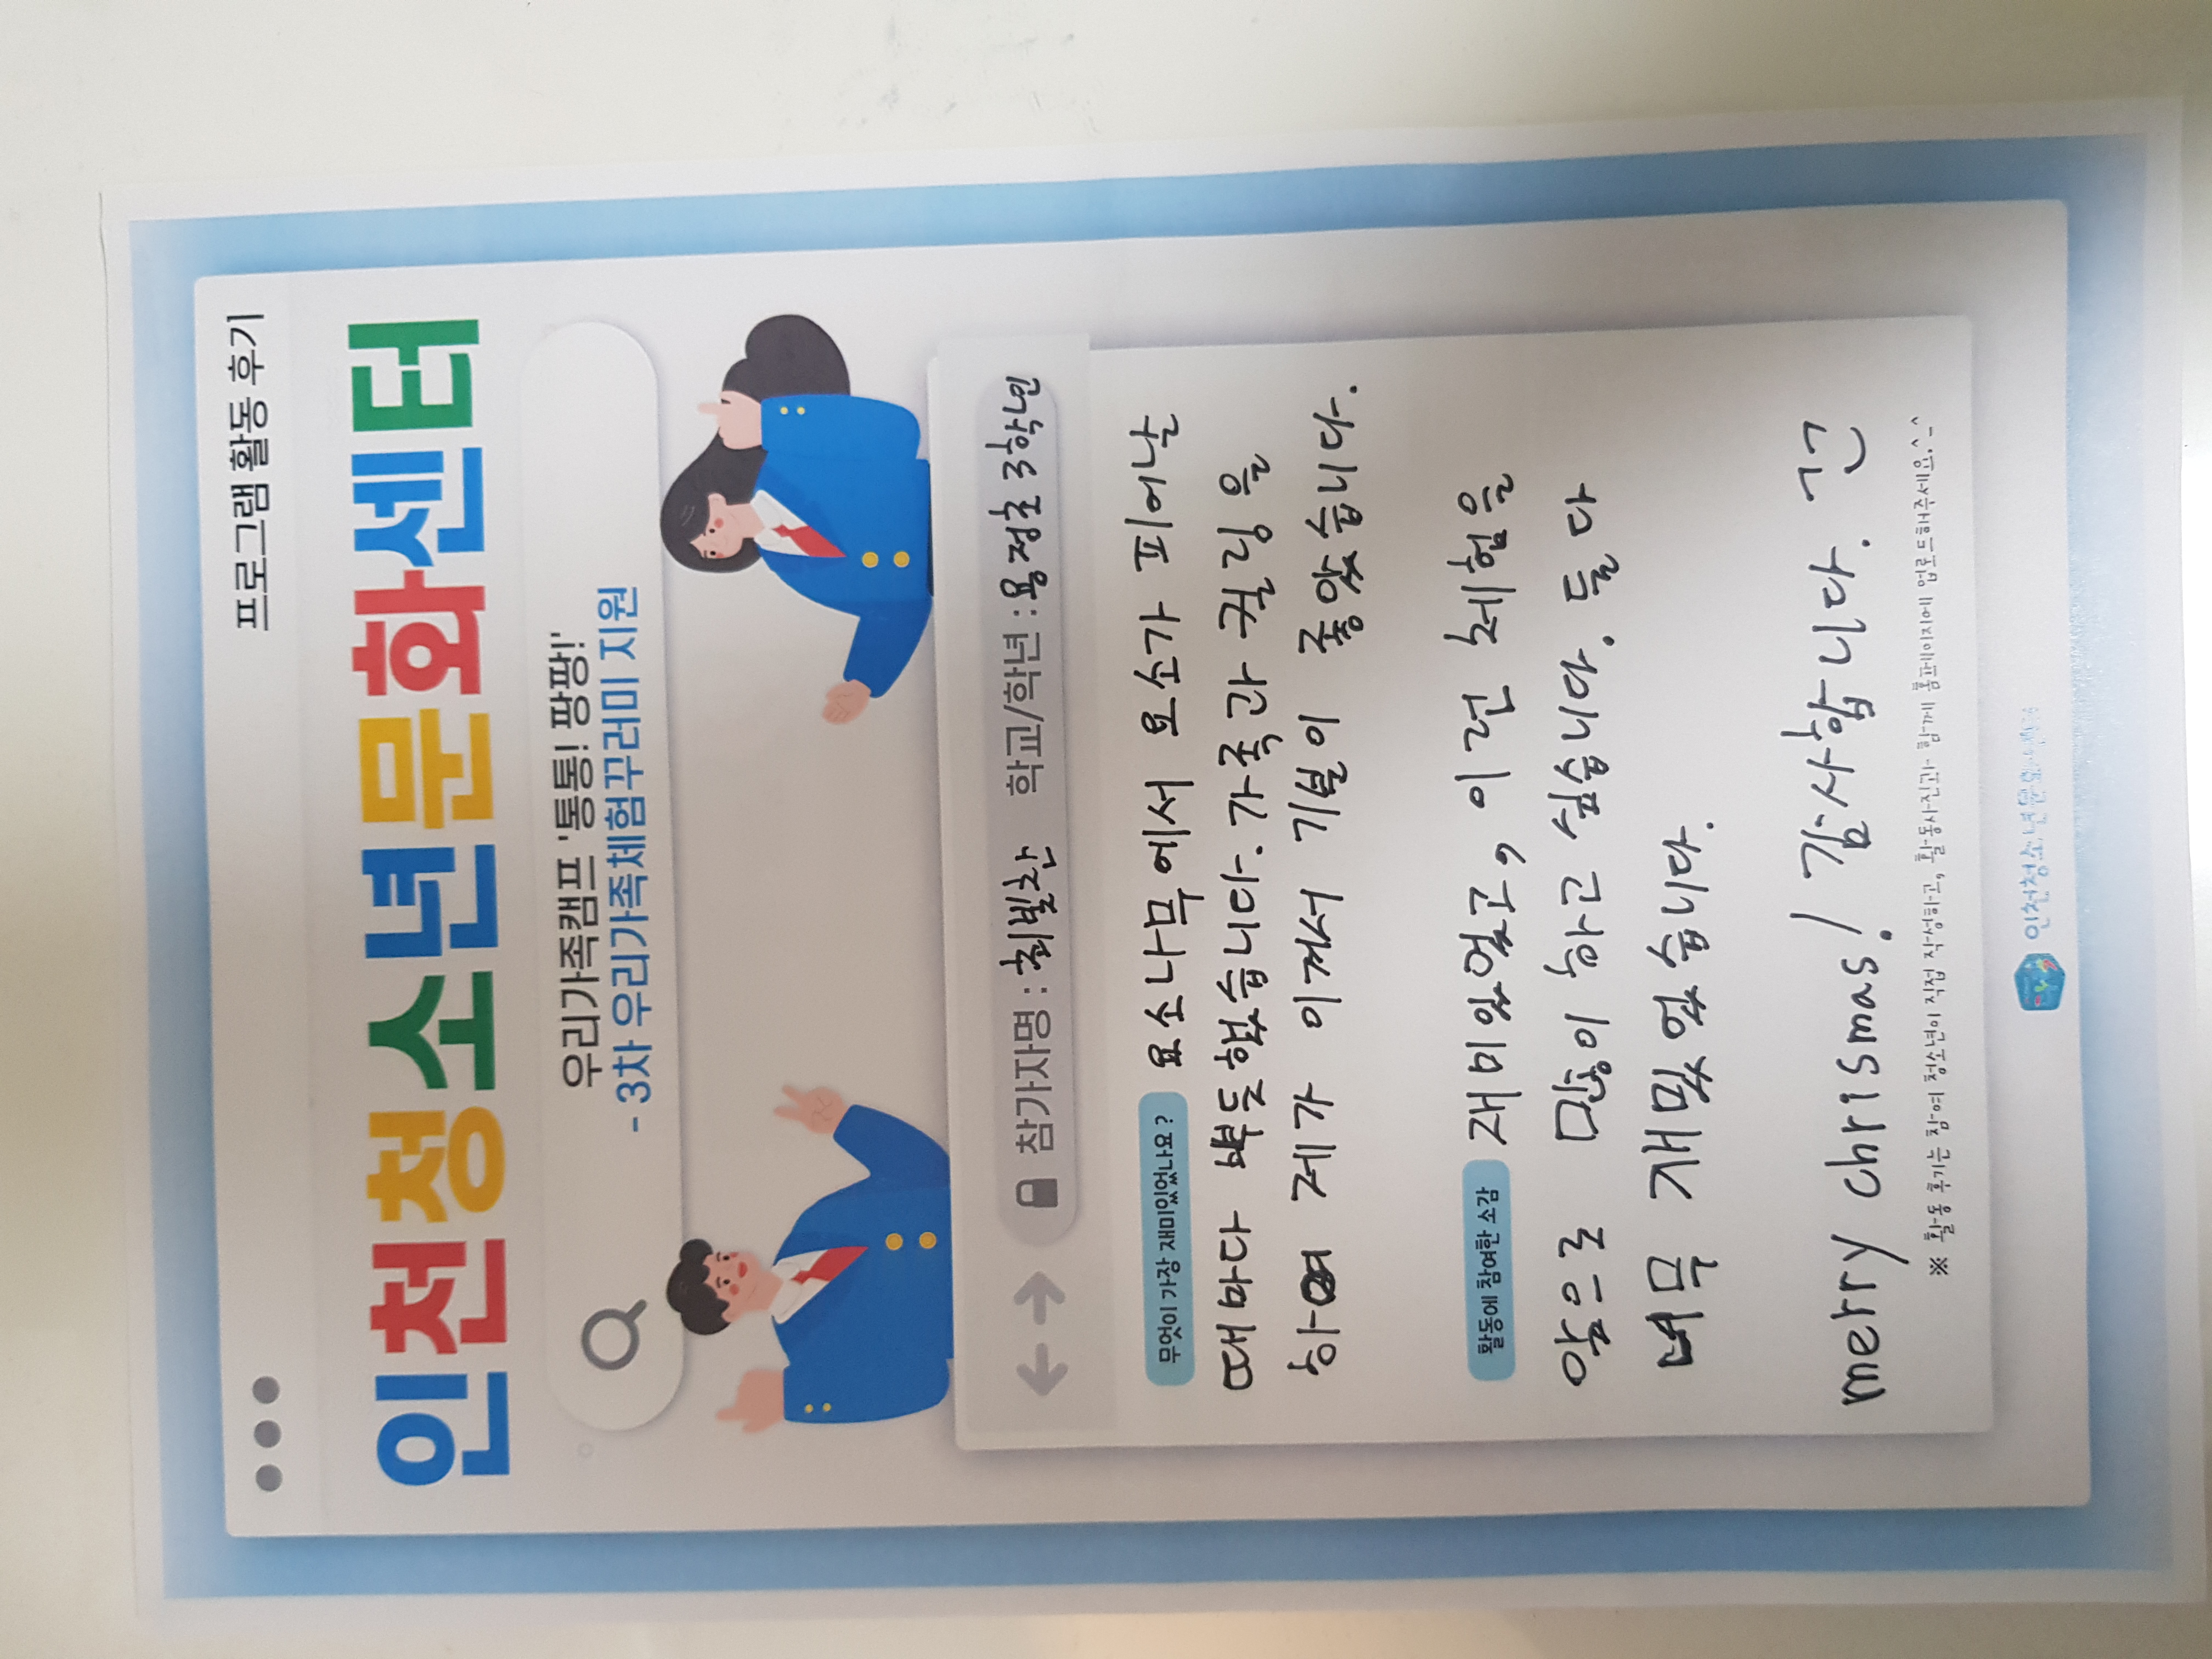 프로그램 활동 후기
인천청소년문화센터
우리가족캠프 '통통! 팡팡!'
- 3차 우리가족체험꾸러미 지원
참가자명 : 최빛찬 학교/학년 : 용정초 3학년
무엇이 가장 재미있었나요? 요소나무에서 요소가 피어날
때마다 뿌듯했습니다. 가족과 퀴링을
하여 제가 이겨서 기분이 좋았습니다.
활동에 참여한 소감 재미있었고, 이런 체험을
앞으로 많이 하고 싶습니다. 둘 다
너무 재밌었습니다.
merry chrismas! 감사합니다.
※ 활동 후기는 참여 청소년이 직접 작성하고, 활동사진과 함께 홈페이지에 업로드해주세요.^_^
인천청소년문화센터